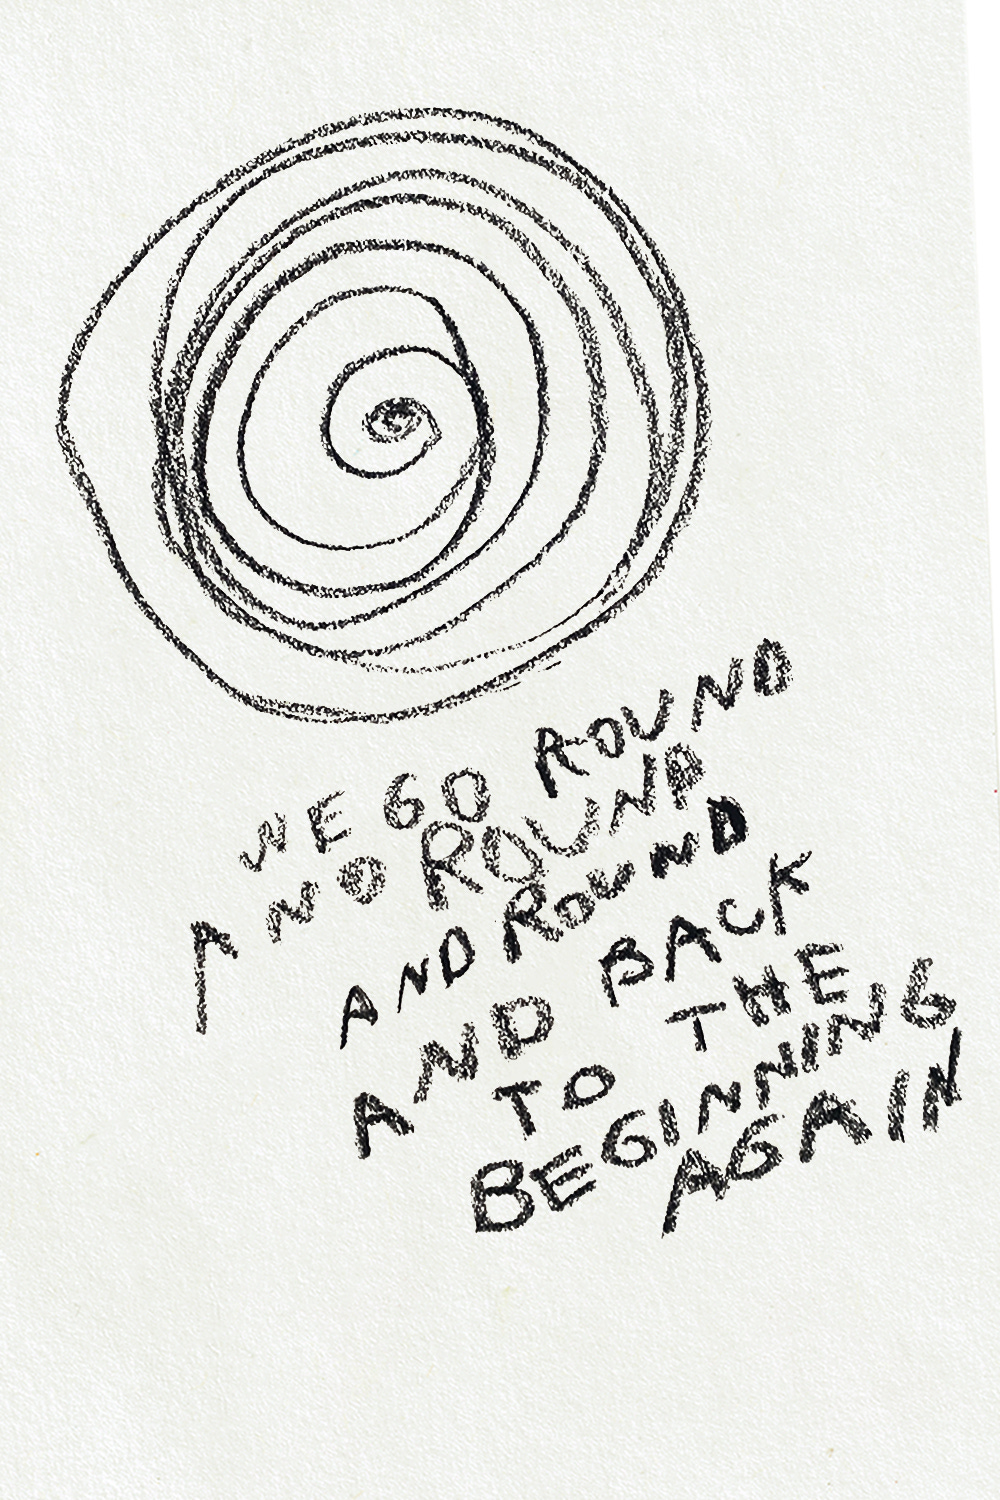 WE GO ROUND
AND ROUND
AND ROUND
AND BACK
TO THE
BEGINNING
AGAIN